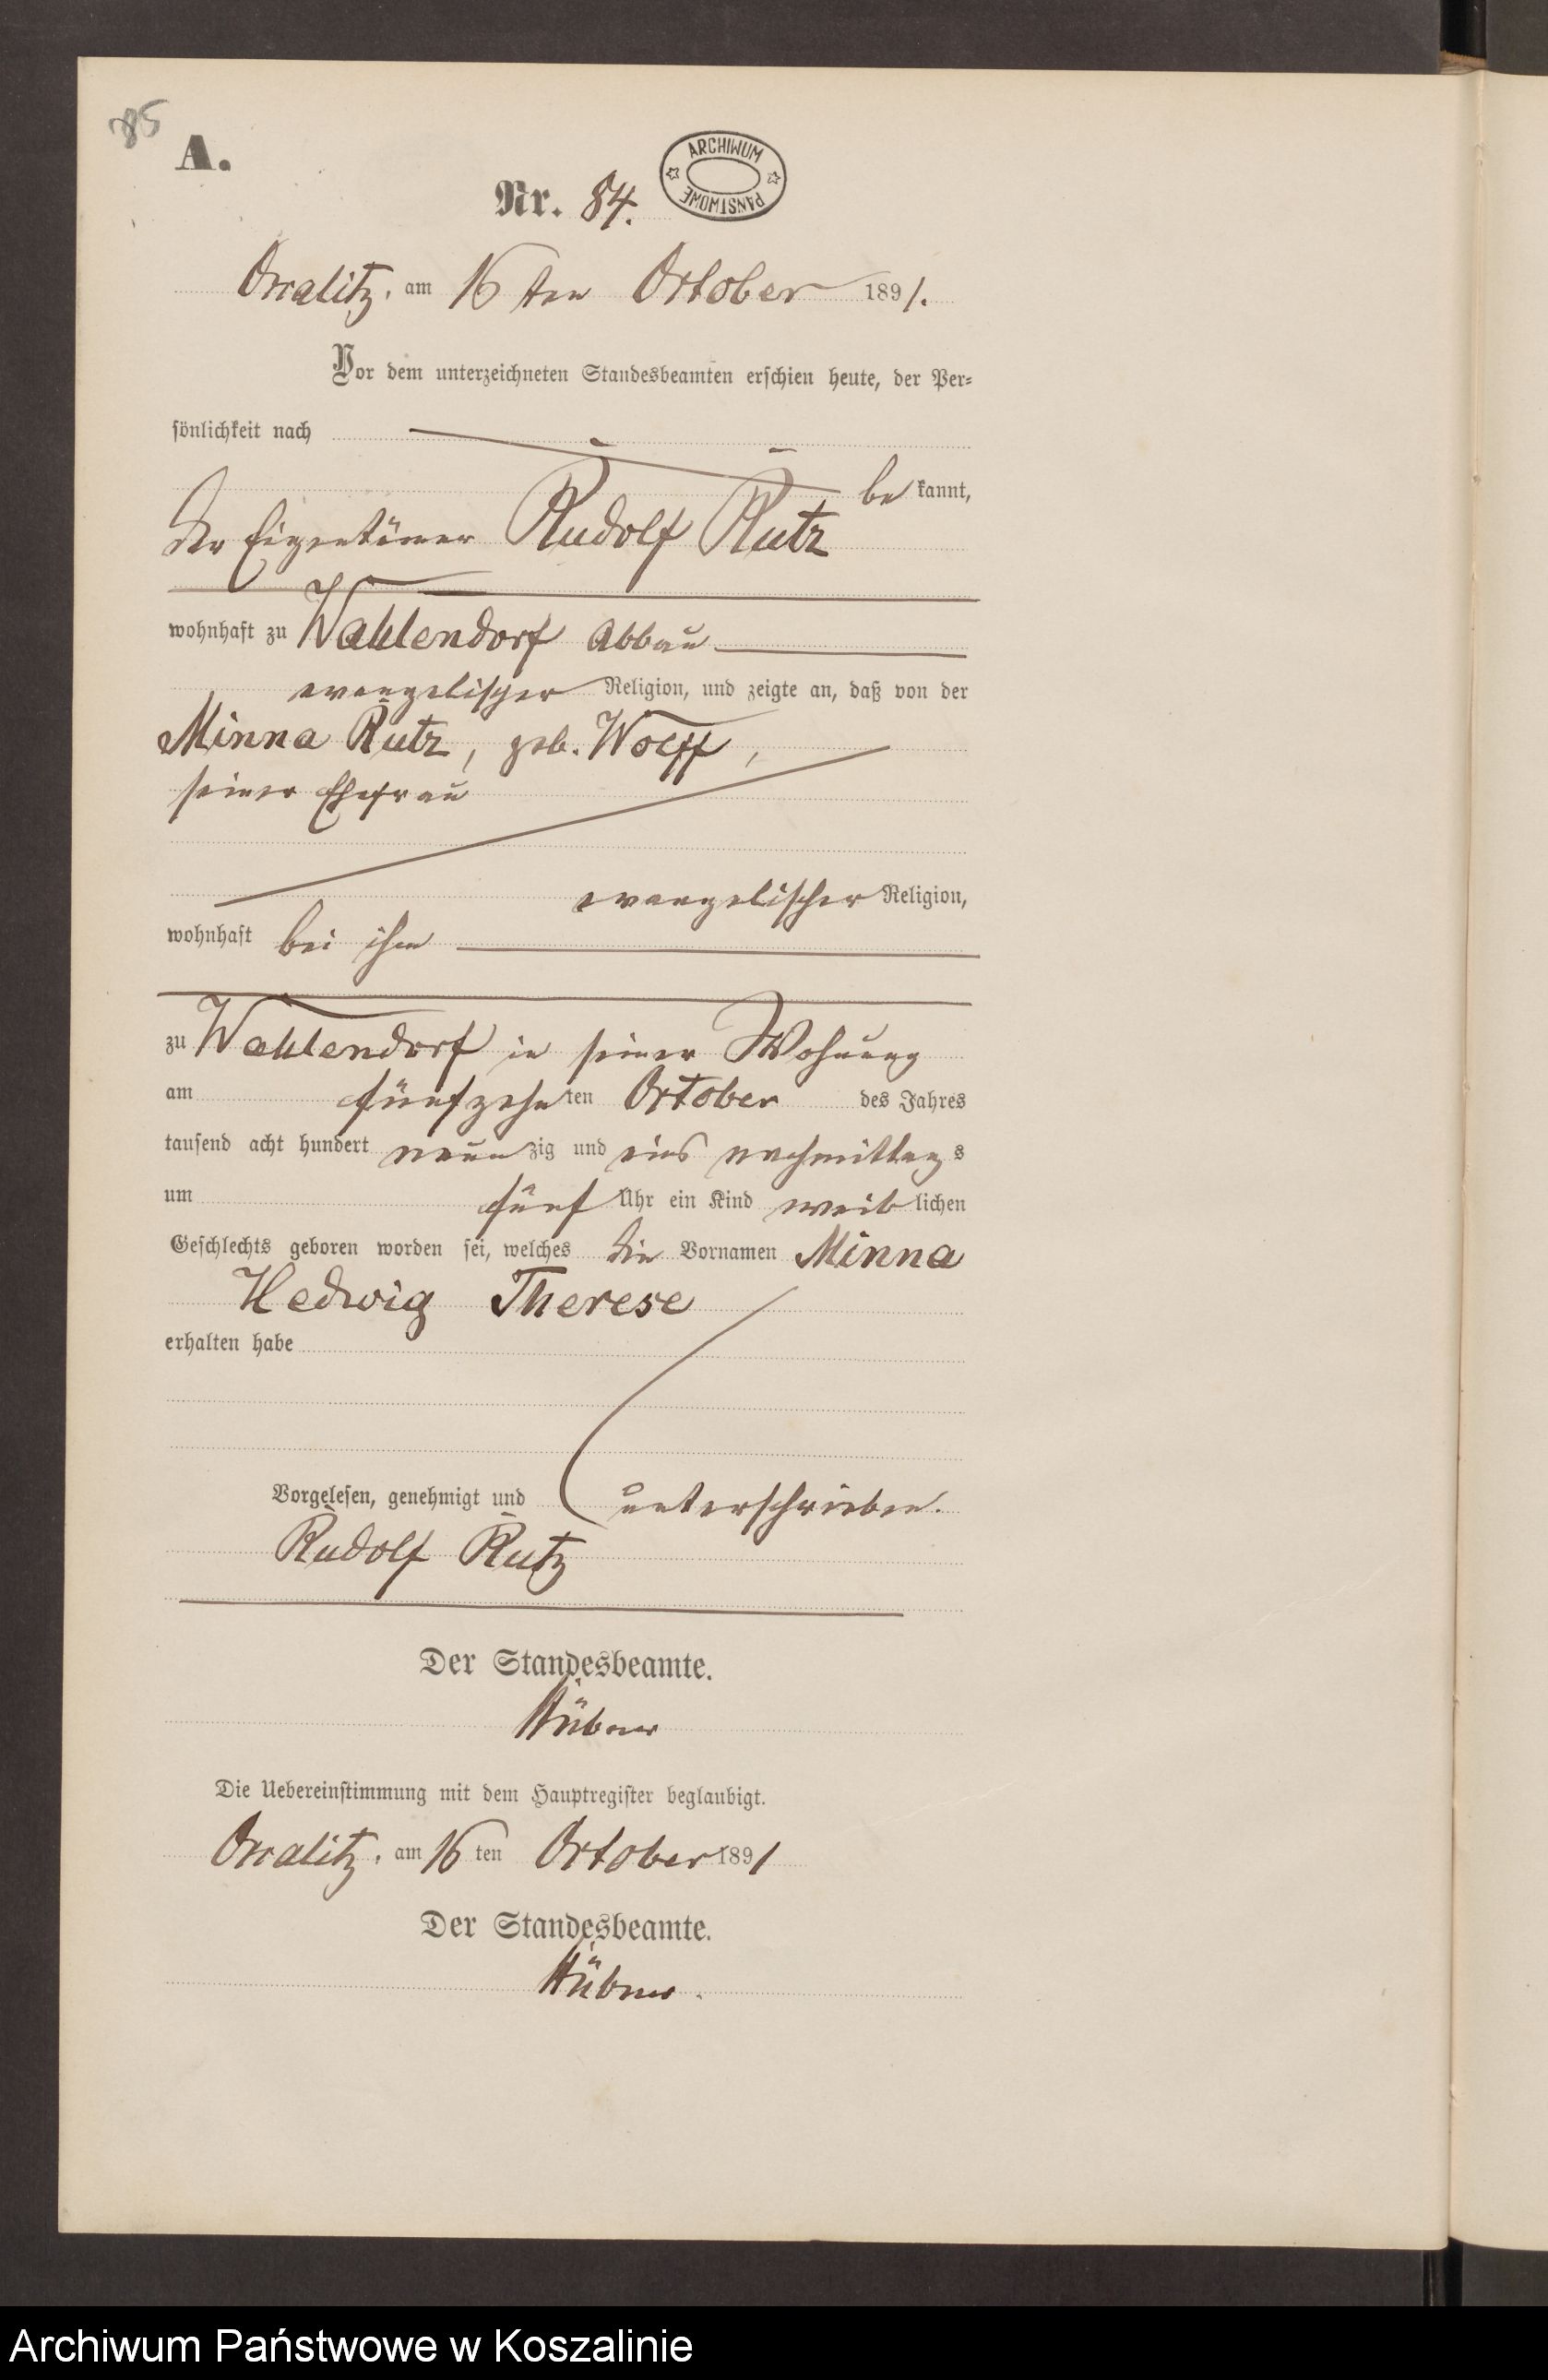 85
A.
ARCHIWUM
PAŃSTWOWE
Nr. 84.
am 16 ten October 1891.
Vor dem unterzeichneten Standesbeamten erschien heute, der Per-
sönlichkeit nach
be kannt,
der Eigentümer Rudolf Rutz
wohnhaft zu Wahlendorf Abbau
evangelischer Religion, und zeigte an, daß von der
Minna Rutz, geb. Wolff,
seiner Ehefrau
evangelischer Religion,
wohnhaft bei ihm
zu Wahlendorf in seiner Wohnung
am fünfzehn ten October des Jahres
tausend acht hundert neun zig und eins nachmittag s
um fünf Uhr ein Kind weib lichen
Geschlechts geboren worden sei, welches die Vornamen Minna
Hedwig Therese
erhalten habe
Vorgelesen, genehmigt und unterschrieben.
Rudolf Rutz
Der Standesbeamte.
Hübner
Die Uebereinstimmung mit dem Hauptregister beglaubigt.
am 16 ten October 1891
Der Standesbeamte.
Hübner.
Archiwum Państwowe w Koszalinie